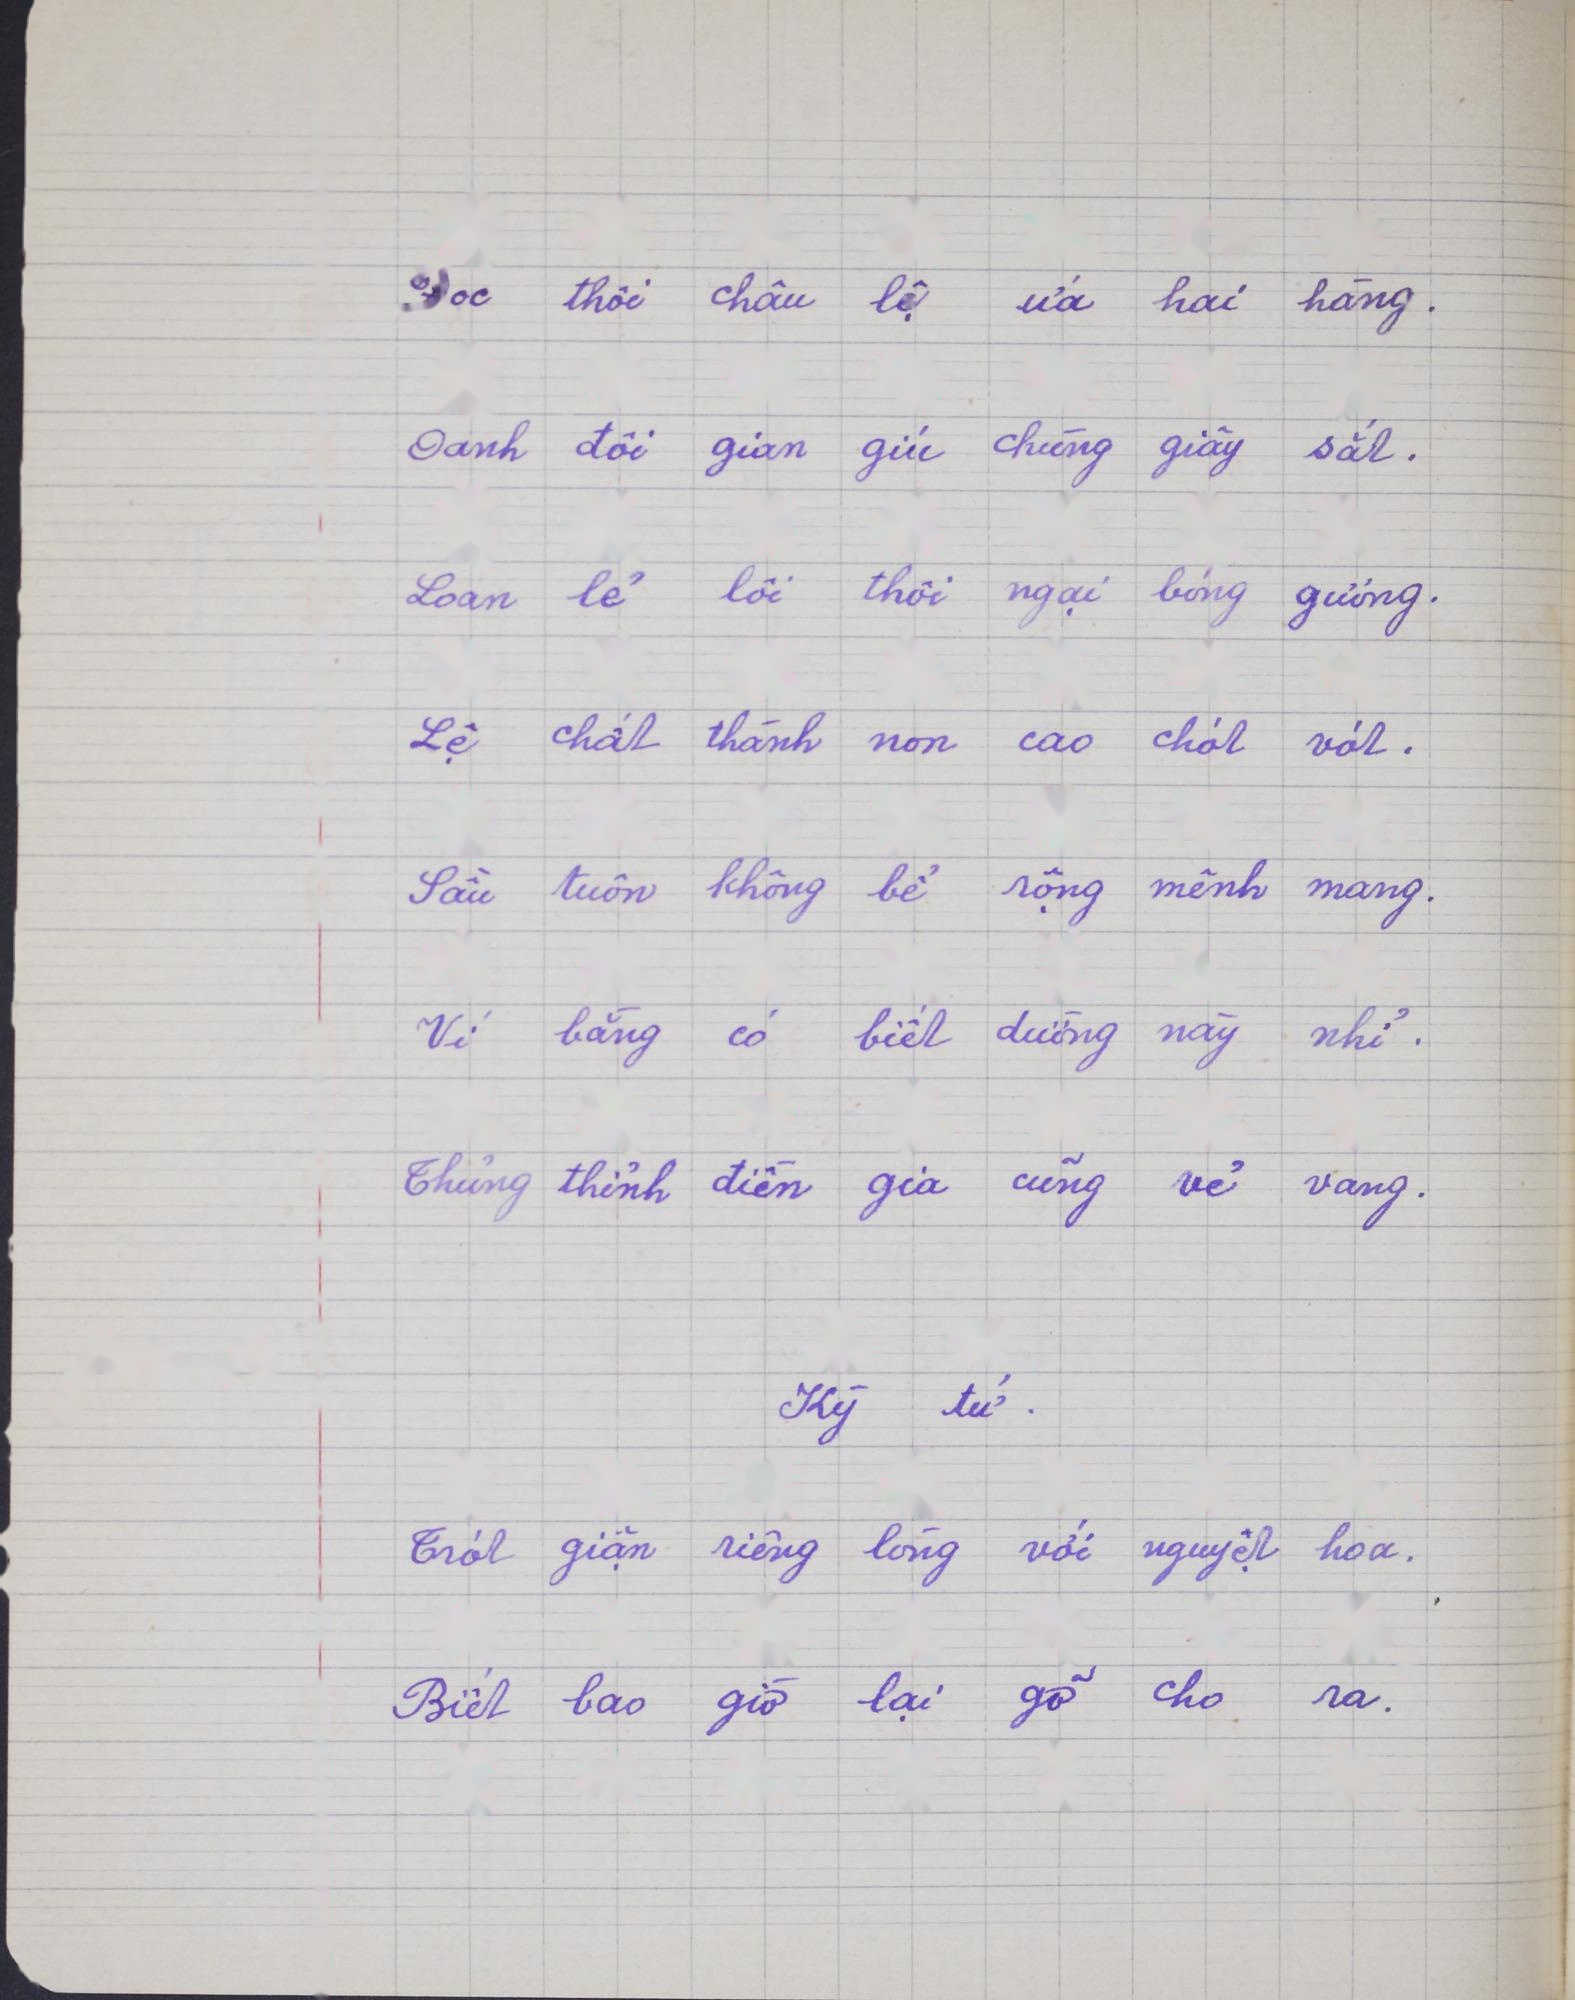 thôi châu lệ ứa hai hàng.
Oanh đôi gian giú chừng giây sắt.
Loan lẻ lôi thôi ngại bóng gương.
Lệ chất thành non cao chót vót.
Sầu tuôn không bể rộng mênh mang.
Ví bằng có biết dường này nhỉ.
Thủng thỉnh điền gia cũng vẻ vang.
Kỳ tứ.
Trót giận riêng lòng với nguyệt hoa.
Biết bao giờ lại gỡ cho ra.